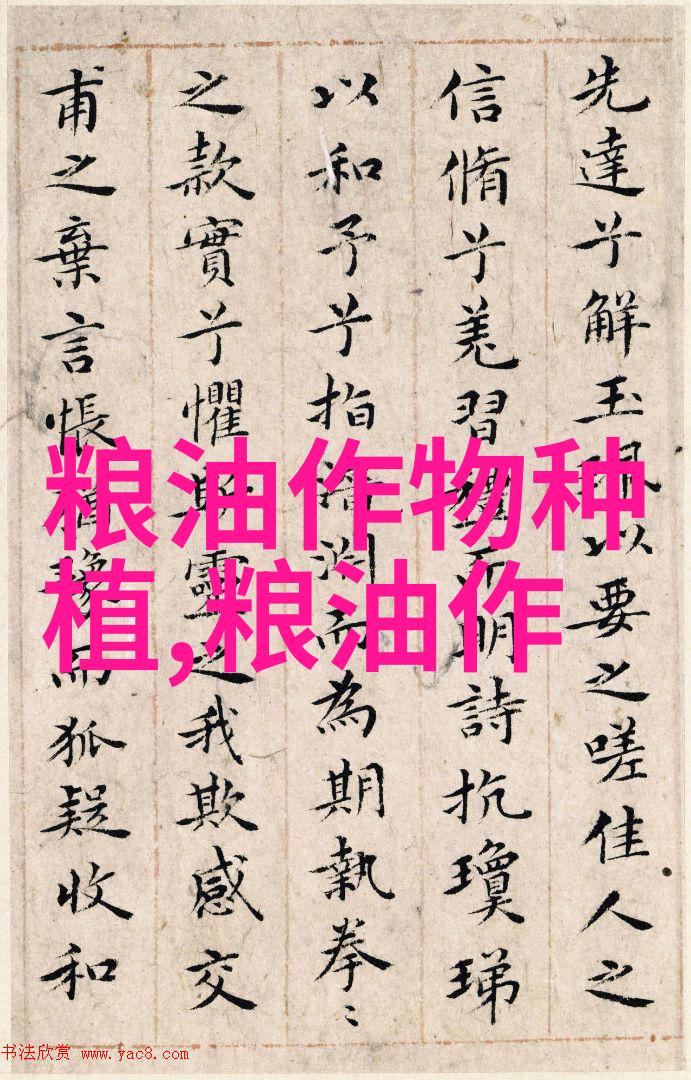 先達兮解玉珮以要之嗟佳人之
信脩兮羌習禮而明詩抗瓊珶
以和予兮指潛淵而為期執拳〻
之款實兮懼斯靈之我欺感交
甫之棄言悵猶豫而狐疑收和
粮油作物种
植,粮油作
书法欣赏 www.yac8.com